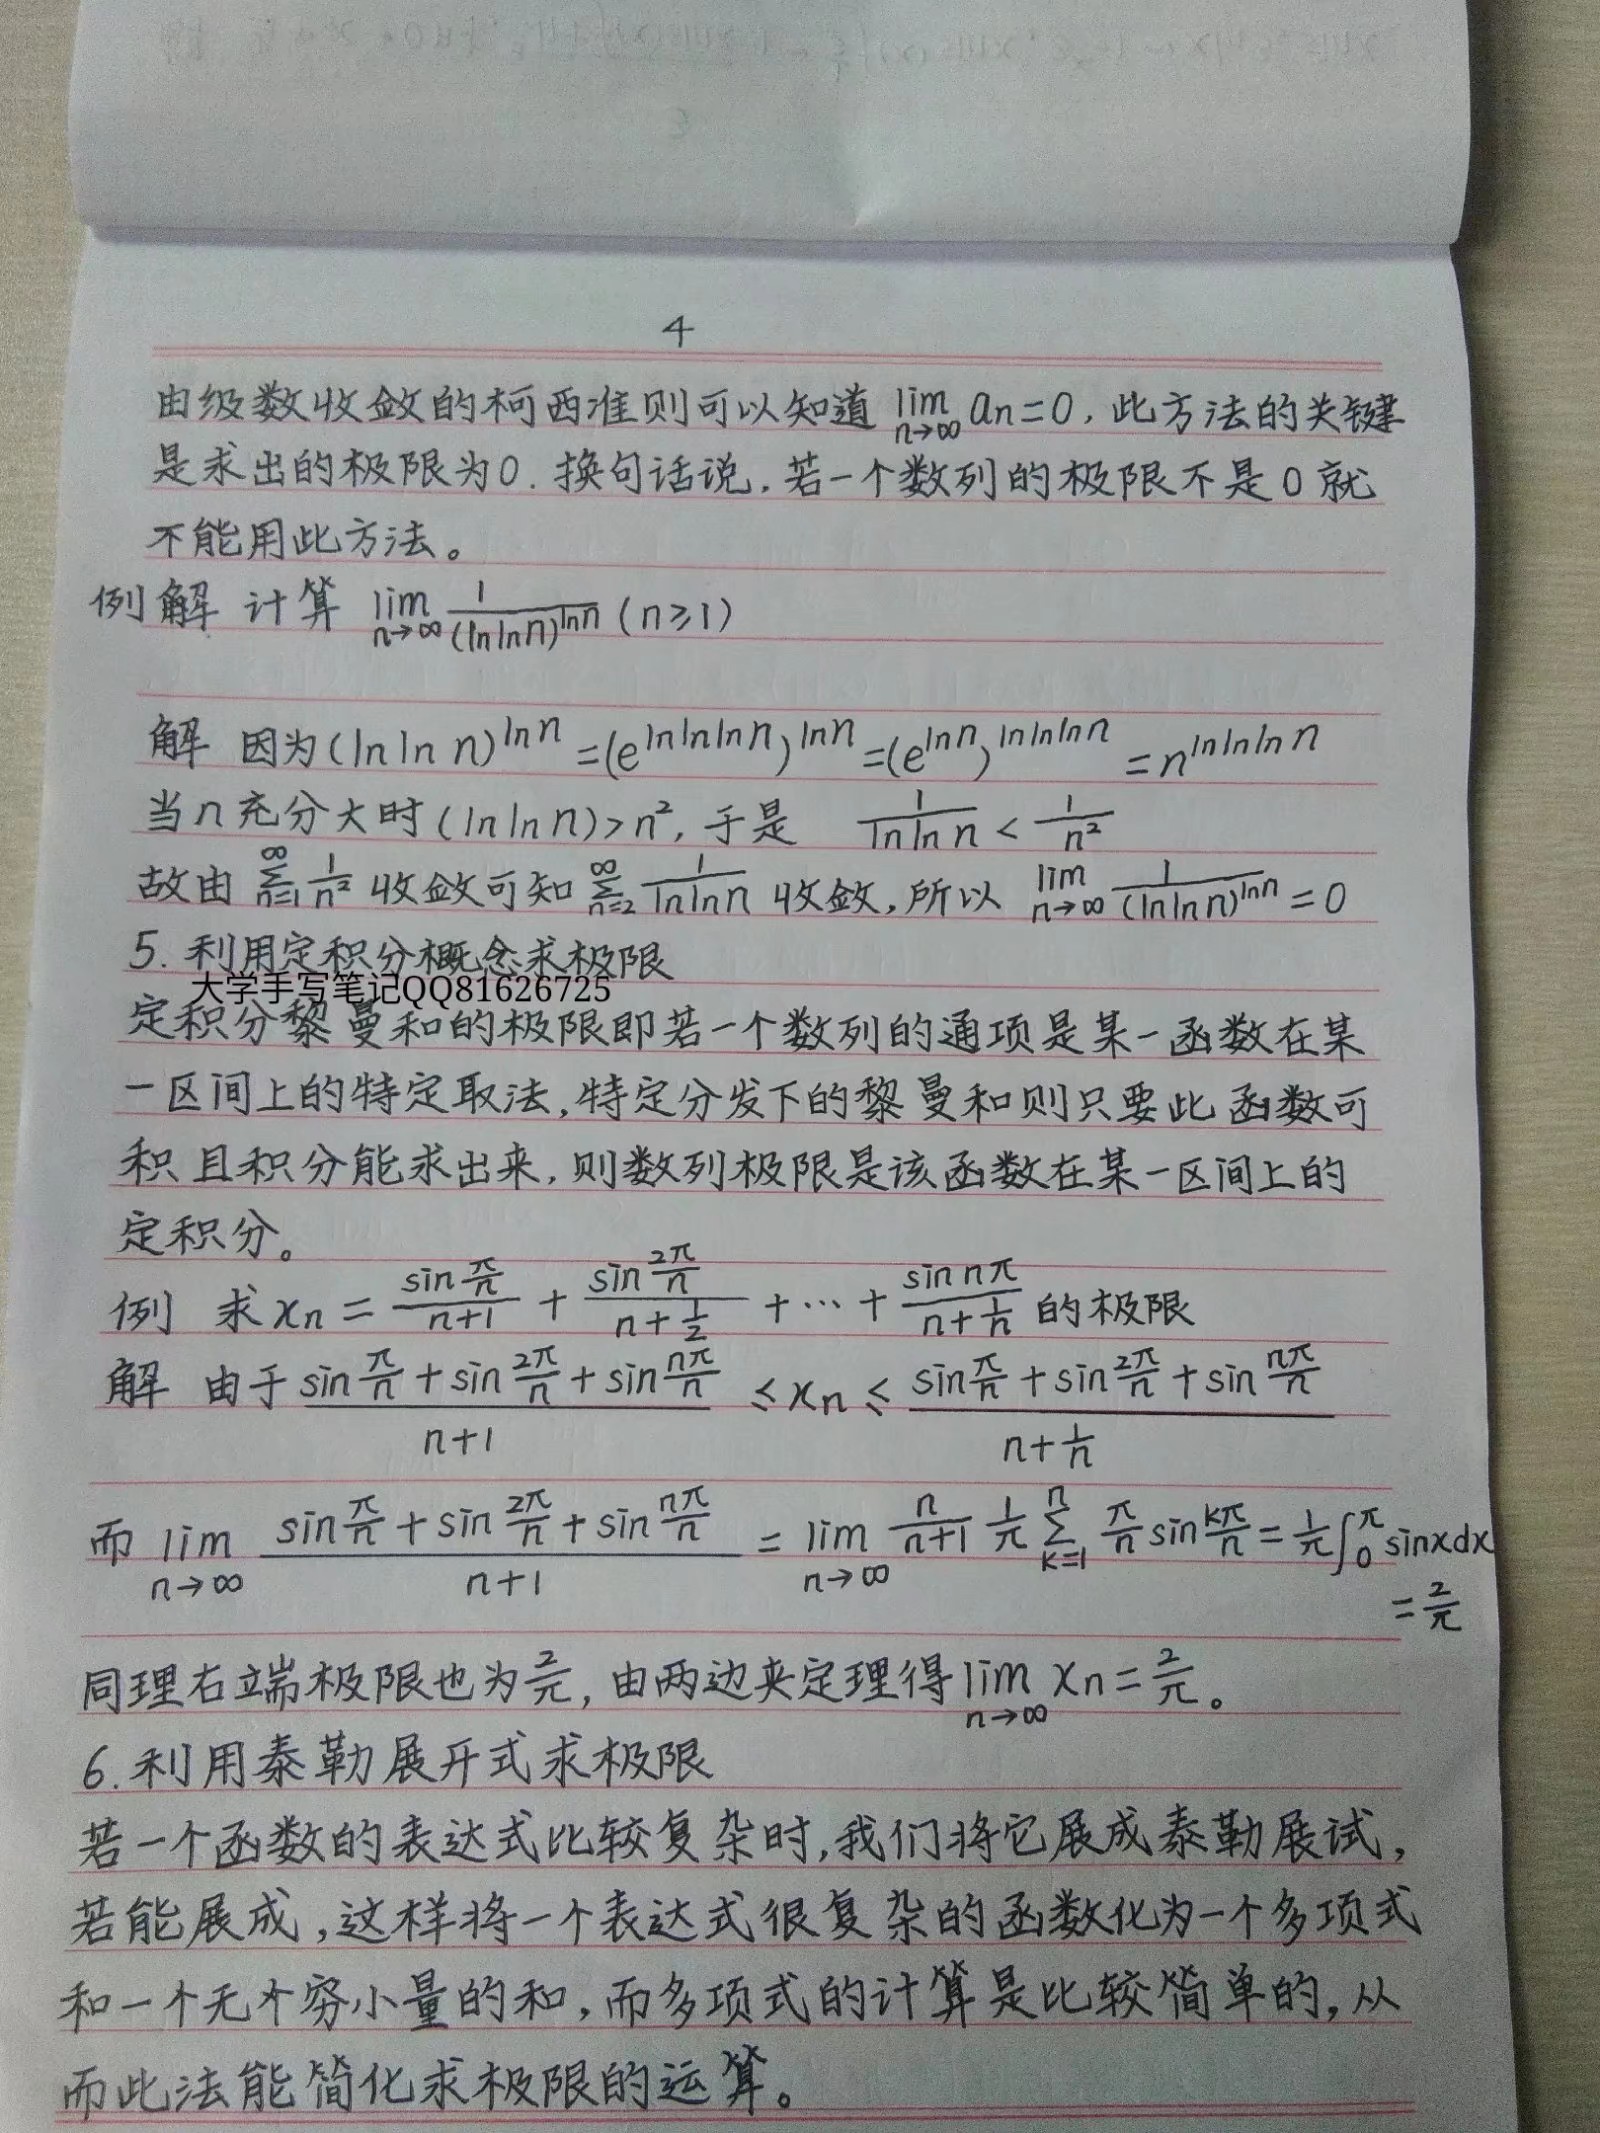 4
由级数收敛的柯西准则可以知道 lim n→∞ an=0, 此方法的关键
是求出的极限为0. 换句话说, 若一个数列的极限不是0就
不能用此方法。
例解 计算 lim n→∞ 1/(ln ln n)^ln n (n≥1)
解 因为(ln ln n)^ln n =(e^ln ln ln n)^ln n =(e^ln n)^ln ln ln n = n^ln ln ln n
当n充分大时(ln ln n)>n², 于是 1/ln ln n < 1/n²
故由 ∞∑n=1 1/n² 收敛可知 ∞∑n=2 1/ln ln n 收敛, 所以 lim n→∞ 1/(ln ln n)^ln n = 0
5. 利用定积分概念求极限
大学手写笔记QQ81626725
定积分黎曼和的极限即若一个数列的通项是某一函数在某
一区间上的特定取法, 特定分发下的黎曼和则只要此函数可
积且积分能求出来, 则数列极限是该函数在某一区间上的
定积分。
例 求 xn = sin π/n / (n+1) + sin 2π/n / (n+1/2) + … + sin nπ / (n+1/n) 的极限
解 由于 (sin π/n + sin 2π/n + sin nπ/n) / (n+1) ≤ xn ≤ (sin π/n + sin 2π/n + sin nπ/n) / (n+1/n)
而 lim n→∞ (sin π/n + sin 2π/n + sin nπ/n) / (n+1) = lim n→∞ n/(n+1) 1/π n∑k=1 π/n sin kπ/n = 1/π ∫0^π sinxdx
= 2/π
同理右端极限也为2/π, 由两边夹定理得 lim n→∞ xn = 2/π。
6. 利用泰勒展开式求极限
若一个函数的表达式比较复杂时, 我们将它展成泰勒展试,
若能展成, 这样将一个表达式很复杂的函数化为一个多项式
和一个无个穷小量的和, 而多项式的计算是比较简单的, 从
而此法能简化求极限的运算。